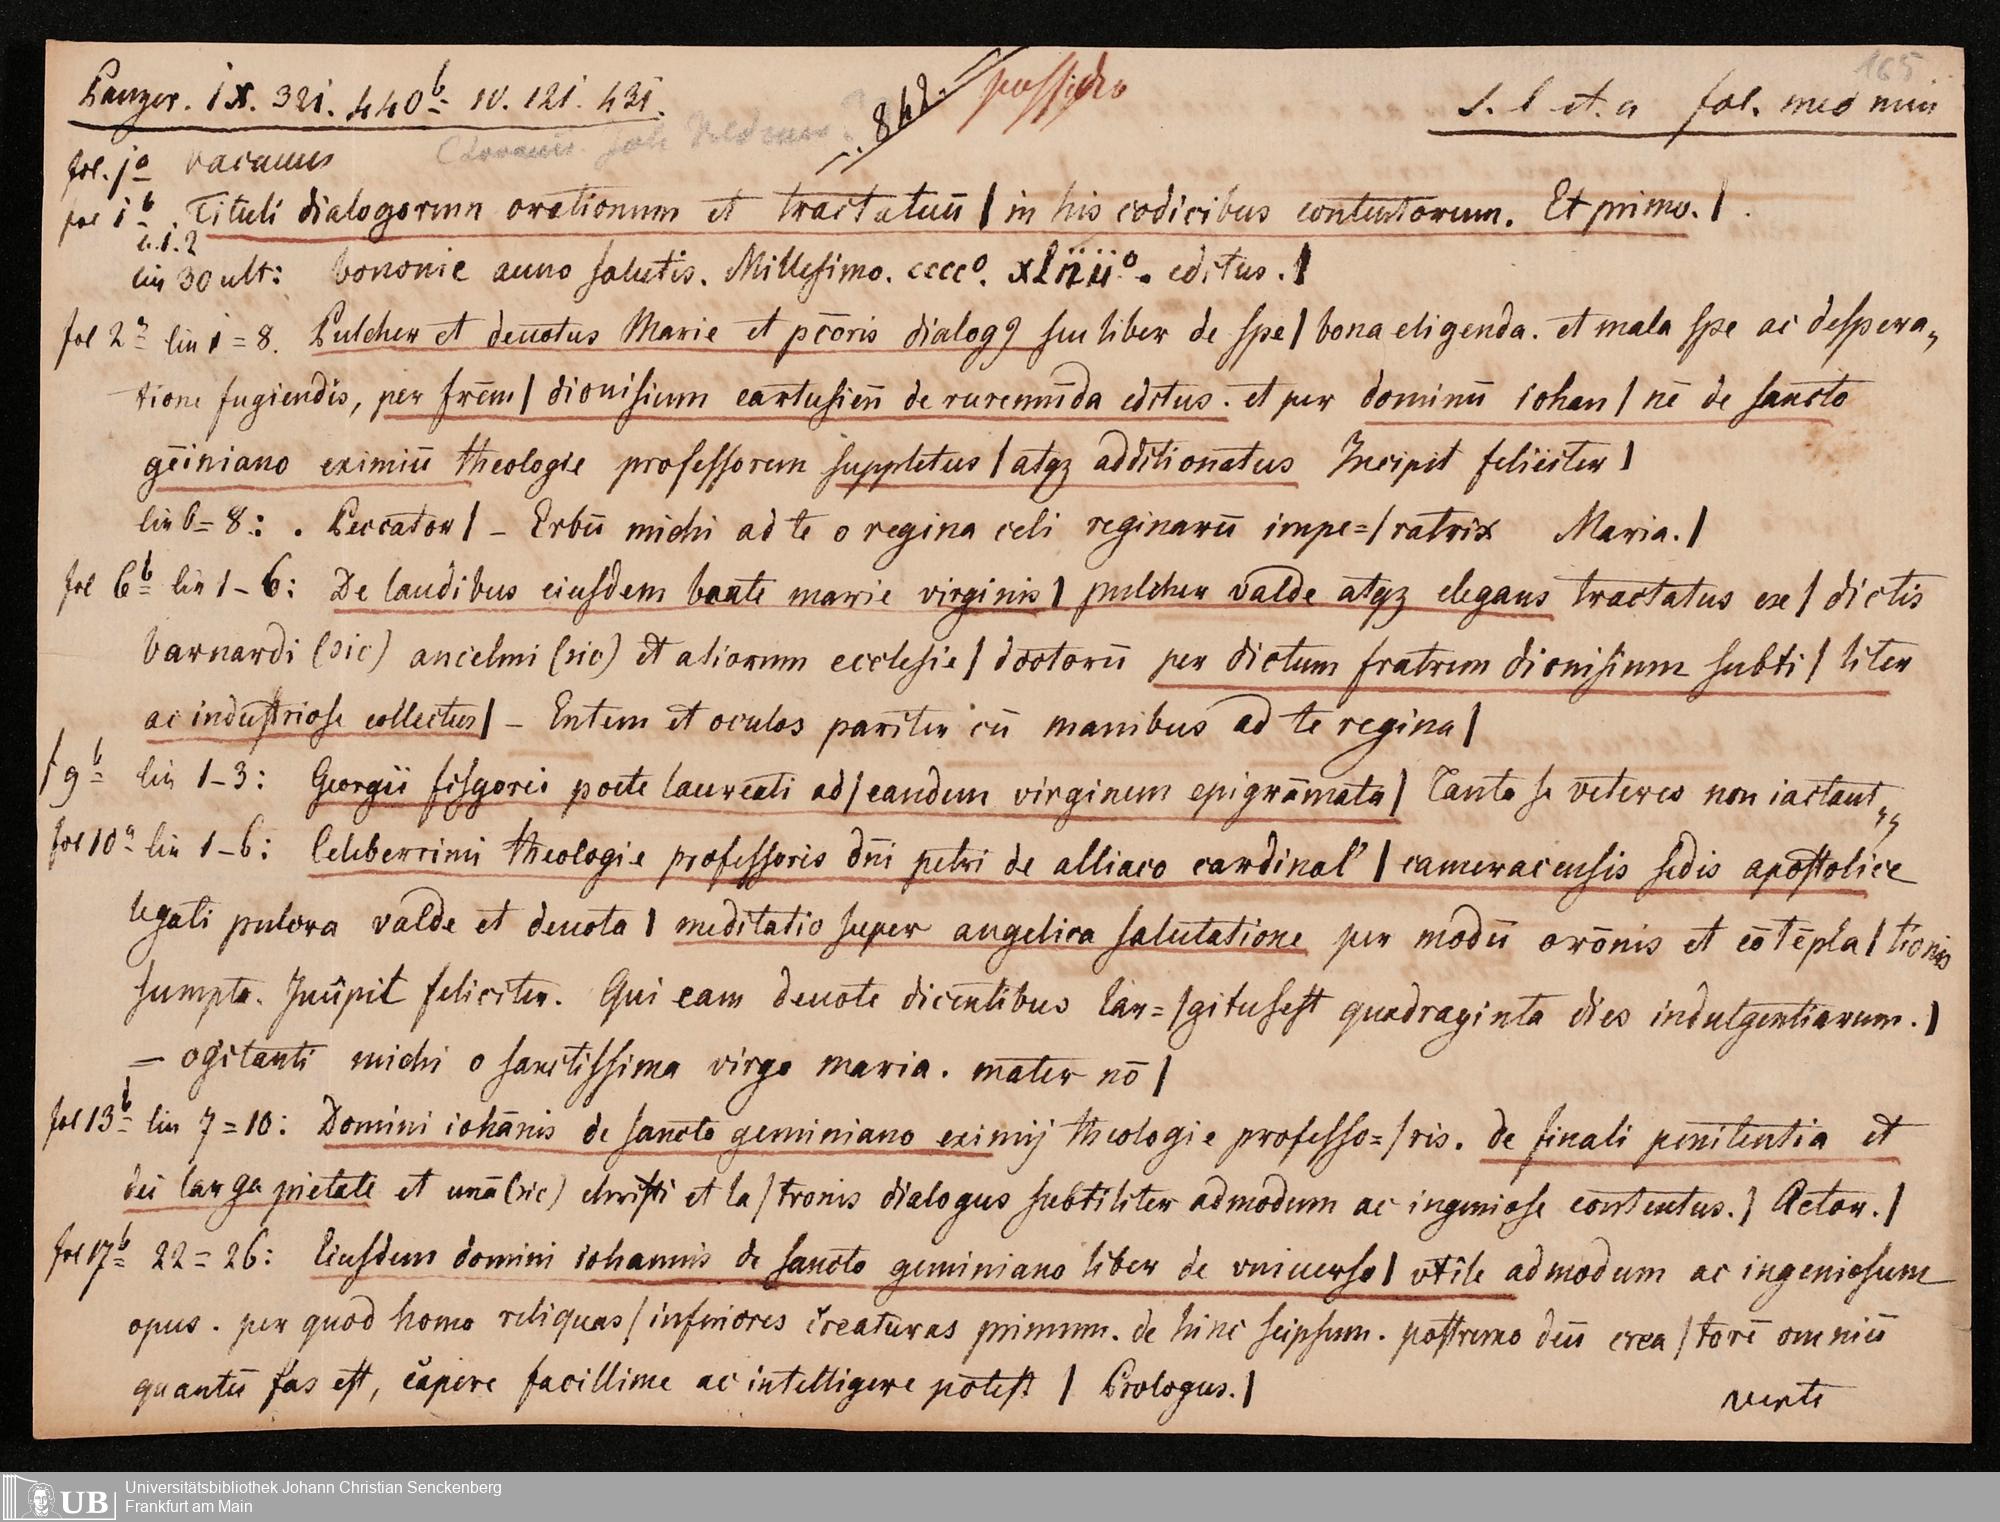 Panzer. IX. 321. 440b IV. 121. 431.
842.
possideo
165
S. l et. a fol. med min
fol. 1a vacuus
fol 1b. Tituli dialogorum orationum et tractatuū | in his codicibus contentorum. Et primo. |
li. 1. 2
lin 30 ult: bononie anno salutis. Millesimo. cccco. editus. |
fol 2a lin 1=8. Pulcher et deuotus Marie et pc̄oris dialogꝯ siu liber de spe | bona eligenda. et mala spe ac despera,,
tione fugiendis, per frēm | dionisium cartusieñ de ruremūda editus. et per dominū iohan | nē de sancto
gēiniano eximiū theologie professorem suppletus | atqz additionatus Incipit feliciter |
lin 6=8: . Peccator | – Erbū michi ad te o regina celi reginarū impe=/ratrix Maria. |
fol 6b lin 1–6: De laudibus eiusdem beate marie virginis | pulcher valde atqz elegans tractatus exe | dictis
barnardi (sic) ancelmi (sic) et aliorum ecclesie | doctorū per dictum fratrem dionisium subti | liter
ac industriose collectus | – Entem et oculos pariter cū manibus ad te regina |
f 9b lin 1–3: Georgii fisgorei poete laureati ad | eandem virginem epigrāmata | Tanto se veteres non iactant,,
fol 10a lin 1–6: Celeberrimi theologie professoris dn̄i petri de alliaco cardinal' | cameracensis sedis apostolice
legati pulcra valde et deuota | meditatio super angelica salutatione per modū orōnis et cōtēpla | tionis
sumpta. Incipit feliciter. Qui eam deuote dicentibus lar=|gitus est quadraginta dies indulgentiarum. |
– ogitanti michi o sanctissima virgo maria. mater nō |
fol 13b lin 7=10: Domini iohānis de sancto geminiano eximij theologie professo=|ris. de finali penitentia et
dei larga pietate et unā (sic) christi et la | tronis dialogus subtiliter admodum ac ingeniose contentus. | Actor. |
fol 17b 22=26: Eiusdem domini iohannis de sancto geminiano liber de vniuerso | vtile admodum ac ingeniosum
opus. per quod homo reliquas | inferiores creaturas primum. de hinc seipsum. postremo deū crea | torē omniū
quantū fas est, capere facillime ac intelligere potest | Prologus. |
verte
Universitätsbibliothek Johann Christian Senckenberg
Frankfurt am Main
UB